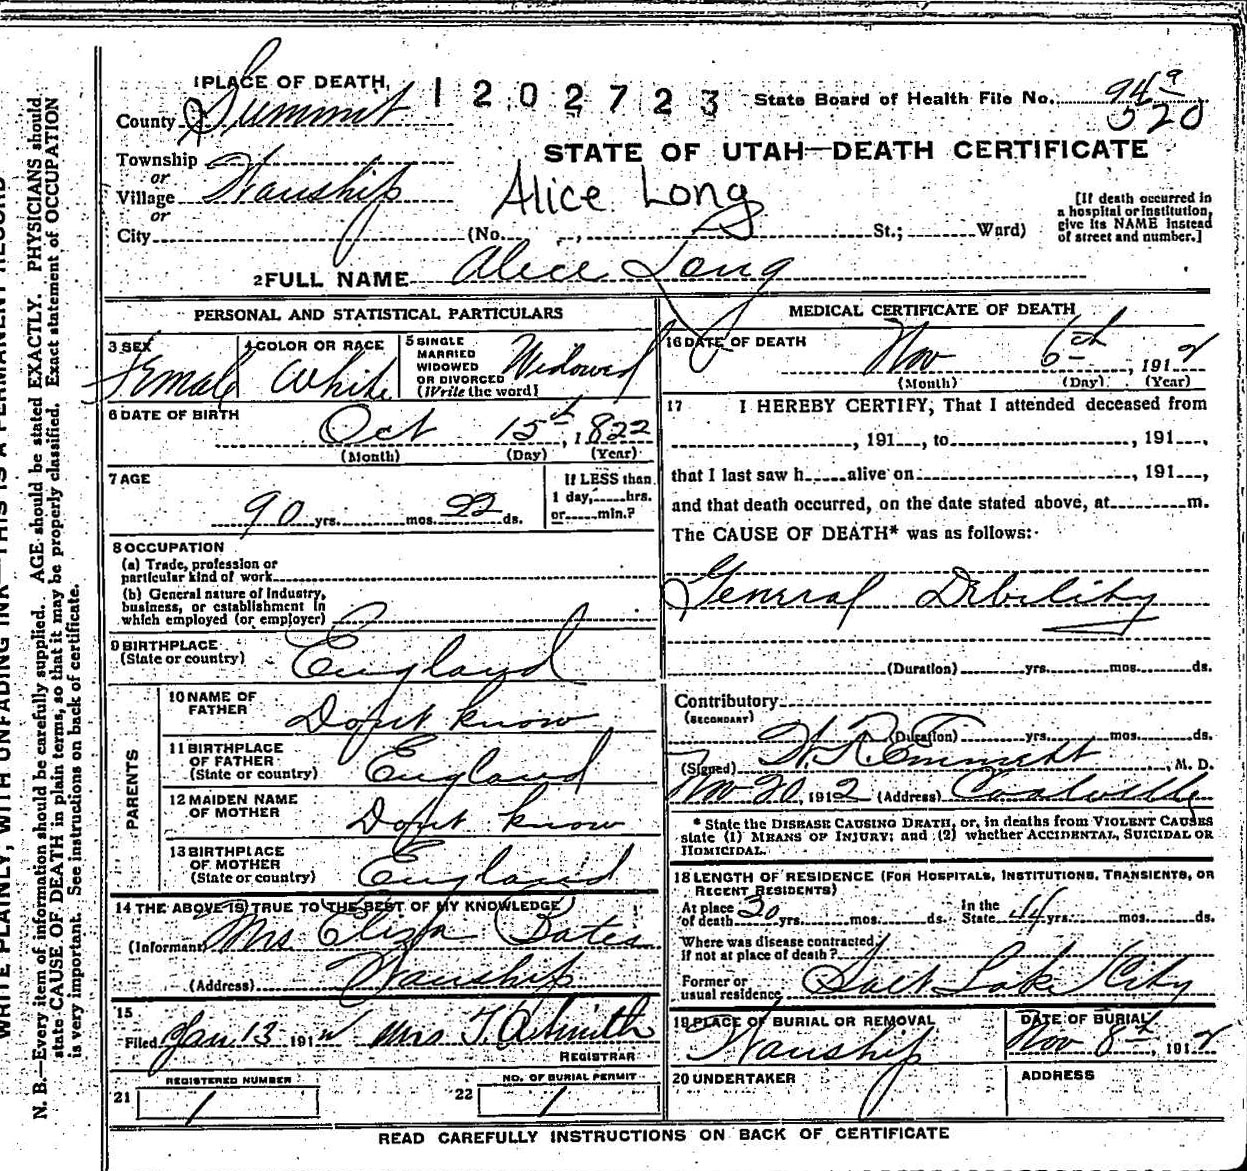 1 PLACE OF DEATH, 1202723 State Board of Health File No. 94a
520
County Summit
STATE OF UTAH—DEATH CERTIFICATE
Township
or
Village Wanship Alice Long
or
City (No. St.; Ward)
[If death occurred in
a hospital or institution,
give its NAME instead
of street and number.]
2 FULL NAME Alice Long
PERSONAL AND STATISTICAL PARTICULARS
3 SEX Female
4 COLOR OR RACE White
5 SINGLE
MARRIED
WIDOWED
OR DIVORCED
(Write the word) Widowed
6 DATE OF BIRTH
Oct 15th, 1822
(Month) (Day) (Year)
7 AGE
90 yrs. mos. 22 ds.
If LESS than
1 day, hrs.
or min.?
8 OCCUPATION
(a) Trade, profession or
particular kind of work
(b) General nature of Industry,
business, or establishment in
which employed (or employer)
9 BIRTHPLACE
(State or country) England
PARENTS
10 NAME OF
FATHER Don't know
11 BIRTHPLACE
OF FATHER
(State or country) England
12 MAIDEN NAME
OF MOTHER Don't know
13 BIRTHPLACE
OF MOTHER
(State or country) England
14 THE ABOVE IS TRUE TO THE BEST OF MY KNOWLEDGE
(Informant) Mrs Eliza Bates
(Address) Wanship
15
Filed Jan 13 191 Mrs T. A. Smith
REGISTRAR
REGISTERED NUMBER
21 1
NO. OF BURIAL PERMIT
22 1
MEDICAL CERTIFICATE OF DEATH
16 DATE OF DEATH
Nov 6th, 1912
(Month) (Day) (Year)
17 I HEREBY CERTIFY, That I attended deceased from
, 191 , to , 191 ,
that I last saw h alive on , 191 ,
and that death occurred, on the date stated above, at m.
The CAUSE OF DEATH* was as follows:
General Debility
(Duration) yrs. mos. ds.
Contributory
(SECONDARY)
(Duration) yrs. mos. ds.
(Signed) Emmett, M. D.
Nov 20, 1912 (Address) Coalville
* State the DISEASE CAUSING DEATH, or, in deaths from VIOLENT CAUSES
state (1) MEANS OF INJURY; and (2) whether ACCIDENTAL, SUICIDAL OR
HOMICIDAL.
18 LENGTH OF RESIDENCE (FOR HOSPITALS, INSTITUTIONS, TRANSIENTS, OR
RECENT RESIDENTS)
At place
of death 30 yrs. mos. ds. In the
State 44 yrs. mos. ds.
Where was disease contracted,
if not at place of death?
Former or
usual residence Salt Lake City
19 PLACE OF BURIAL OR REMOVAL
Wanship
DATE OF BURIAL
Nov 8th, 1912
20 UNDERTAKER
ADDRESS
READ CAREFULLY INSTRUCTIONS ON BACK OF CERTIFICATE
WRITE PLAINLY, WITH UNFADING INK—THIS IS A PERMANENT RECORD
N. B.—Every item of information should be carefully supplied. AGE should be stated EXACTLY. PHYSICIANS should
state CAUSE OF DEATH in plain terms, so that it may be properly classified. Exact statement of OCCUPATION
is very important. See instructions on back of certificate.